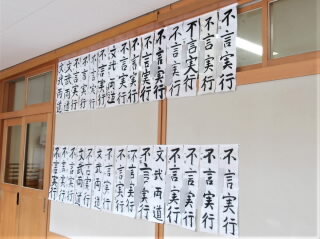 不言実行
不言実行
不言実行
不言実行
不言実行
不言実行
不言実行
不言実行
文武両道
不言実行
不言実行
不言実行
文武両道
文武両道
不言実行
不言実行
不言実行
不言実行
文武両道
不言実行
不言実行
不言実行
文武両道
文武両道
文武両道
不言実行
不言実行